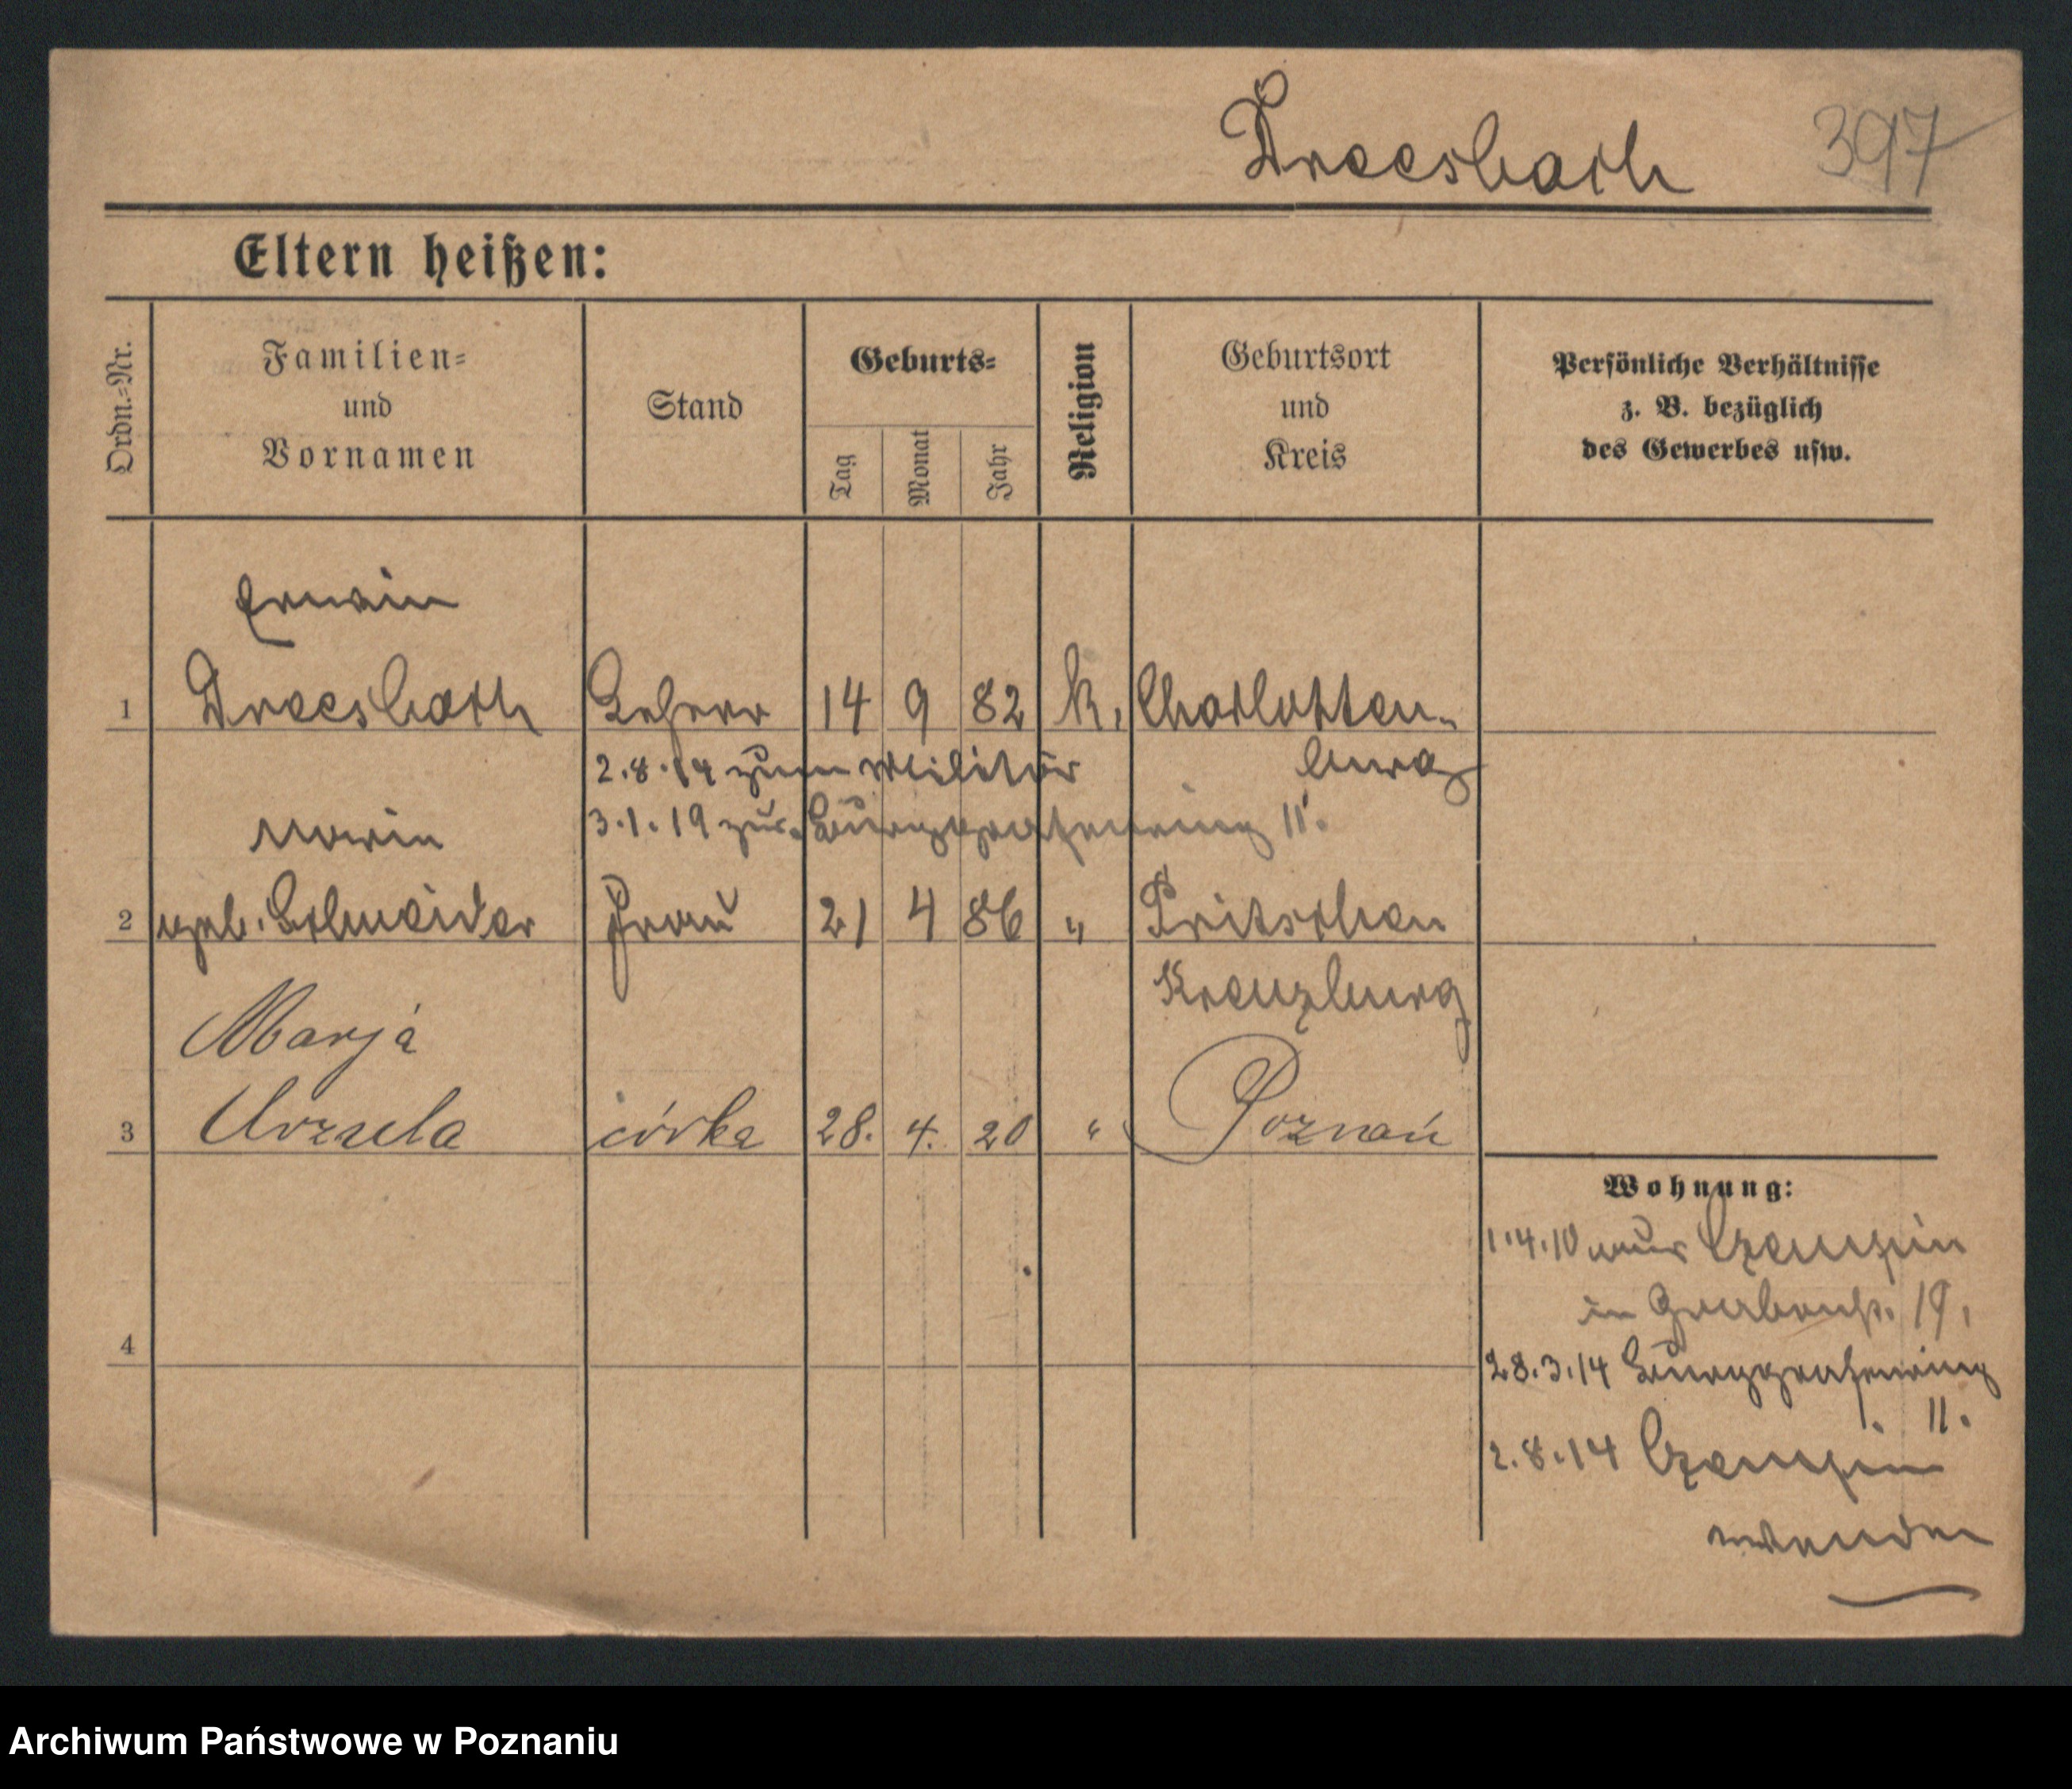 Dreesbach 397
Eltern heißen:
Ordn.-Nr.
Familien-
und
Vornamen
Stand
Geburts-
Tag
Monat
Jahr
Religion
Geburtsort
und
Kreis
Persönliche Verhältnisse
z. B. bezüglich
des Gewerbes usw.
Erwin
1 Dreesbach Lehrer 14 9 82 K. Charlotten-
2.8.14 zum Militär burg
3.1.19 zur. Burggrafenring 11.
Maria
2 geb. Schneider Frau 21 4 86 " Pritschen
Kreuzburg
Marja
3 Urzula córka 28. 4. 20 " Poznań
Wohnung:
1.4.10 aus Czempin
in Grabenstr. 19,
4
28.3.14 Burggrafenring
11.
2.8.14 Czempin
Archiwum Państwowe w Poznaniu